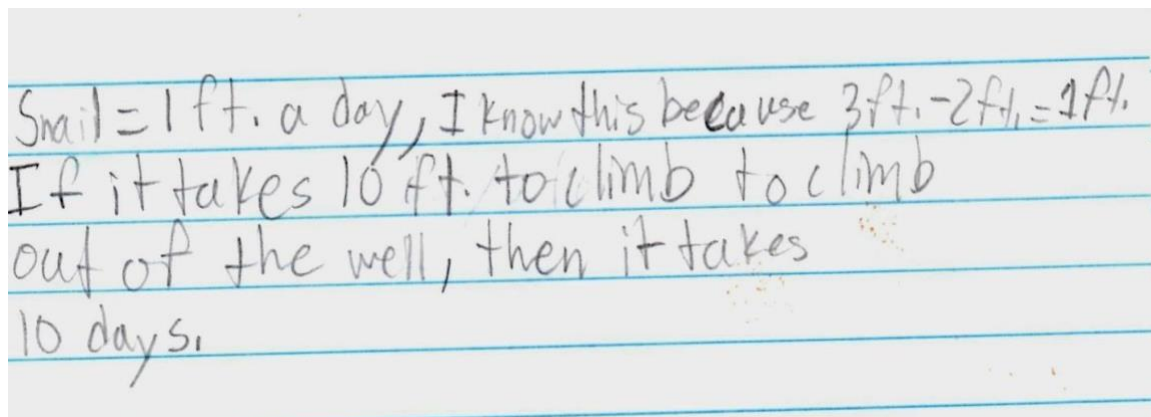 Snail = 1 ft. a day, I know this because 3ft. - 2ft. = 1ft.
If it takes 10 ft. to climb to climb
out of the well, then it takes
10 days.